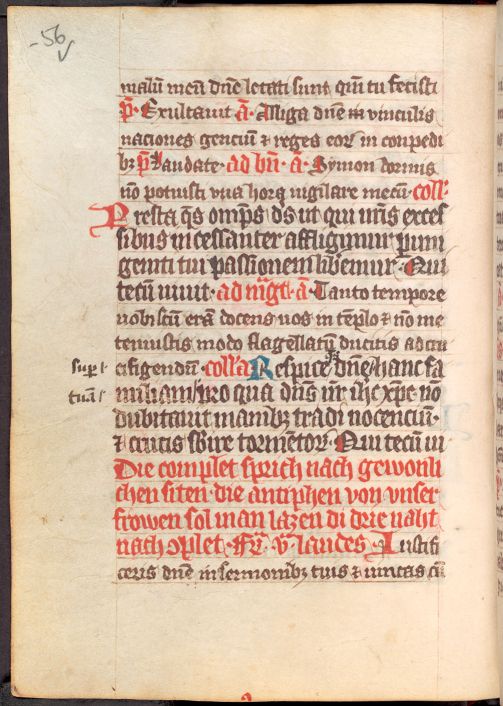 -56v
malū meū dn̄e letati sunt qm̄ tu fecisti
p̄s. Exultauit ā. Alliga dn̄e in vinculis
naciones genciū ⁊ reges eoꝝ in conpedi
bꝫ p̄s Laudate. ad bn̄. ā. Symon dormis
nō potuisti vna hora vigilare mecū. coll.
Presta qs omps ds ut qui nr̄is exces
sibus incessanter affligimur p vni
geniti tui passionem libemur. Qui
tecū viuit. ad mgt ā. Tanto tempore
uobiscū erā docens uos in tēplo ⁊ nō me
tenuistis modo flagellatū ducitis ad cru
cifigendū. colla Respice qs dn̄e hanc fa
sup
miliam pro qua dn̄s nr̄ ihc xp̄c nō
tuā
dubitauit manibꝫ tradi nocenciū.
⁊ crucis sbire tormētoꝝ. Qui tecū ui
Die complet sprich nach gewonli
chen siten. die antiphen von vnser
frowen sol man lazen di drie naht
nach gplet. Fr̄. v̄ laudes. A Iustifi
ceris dn̄e in sermonibꝫ tuis ⁊ vincas cū